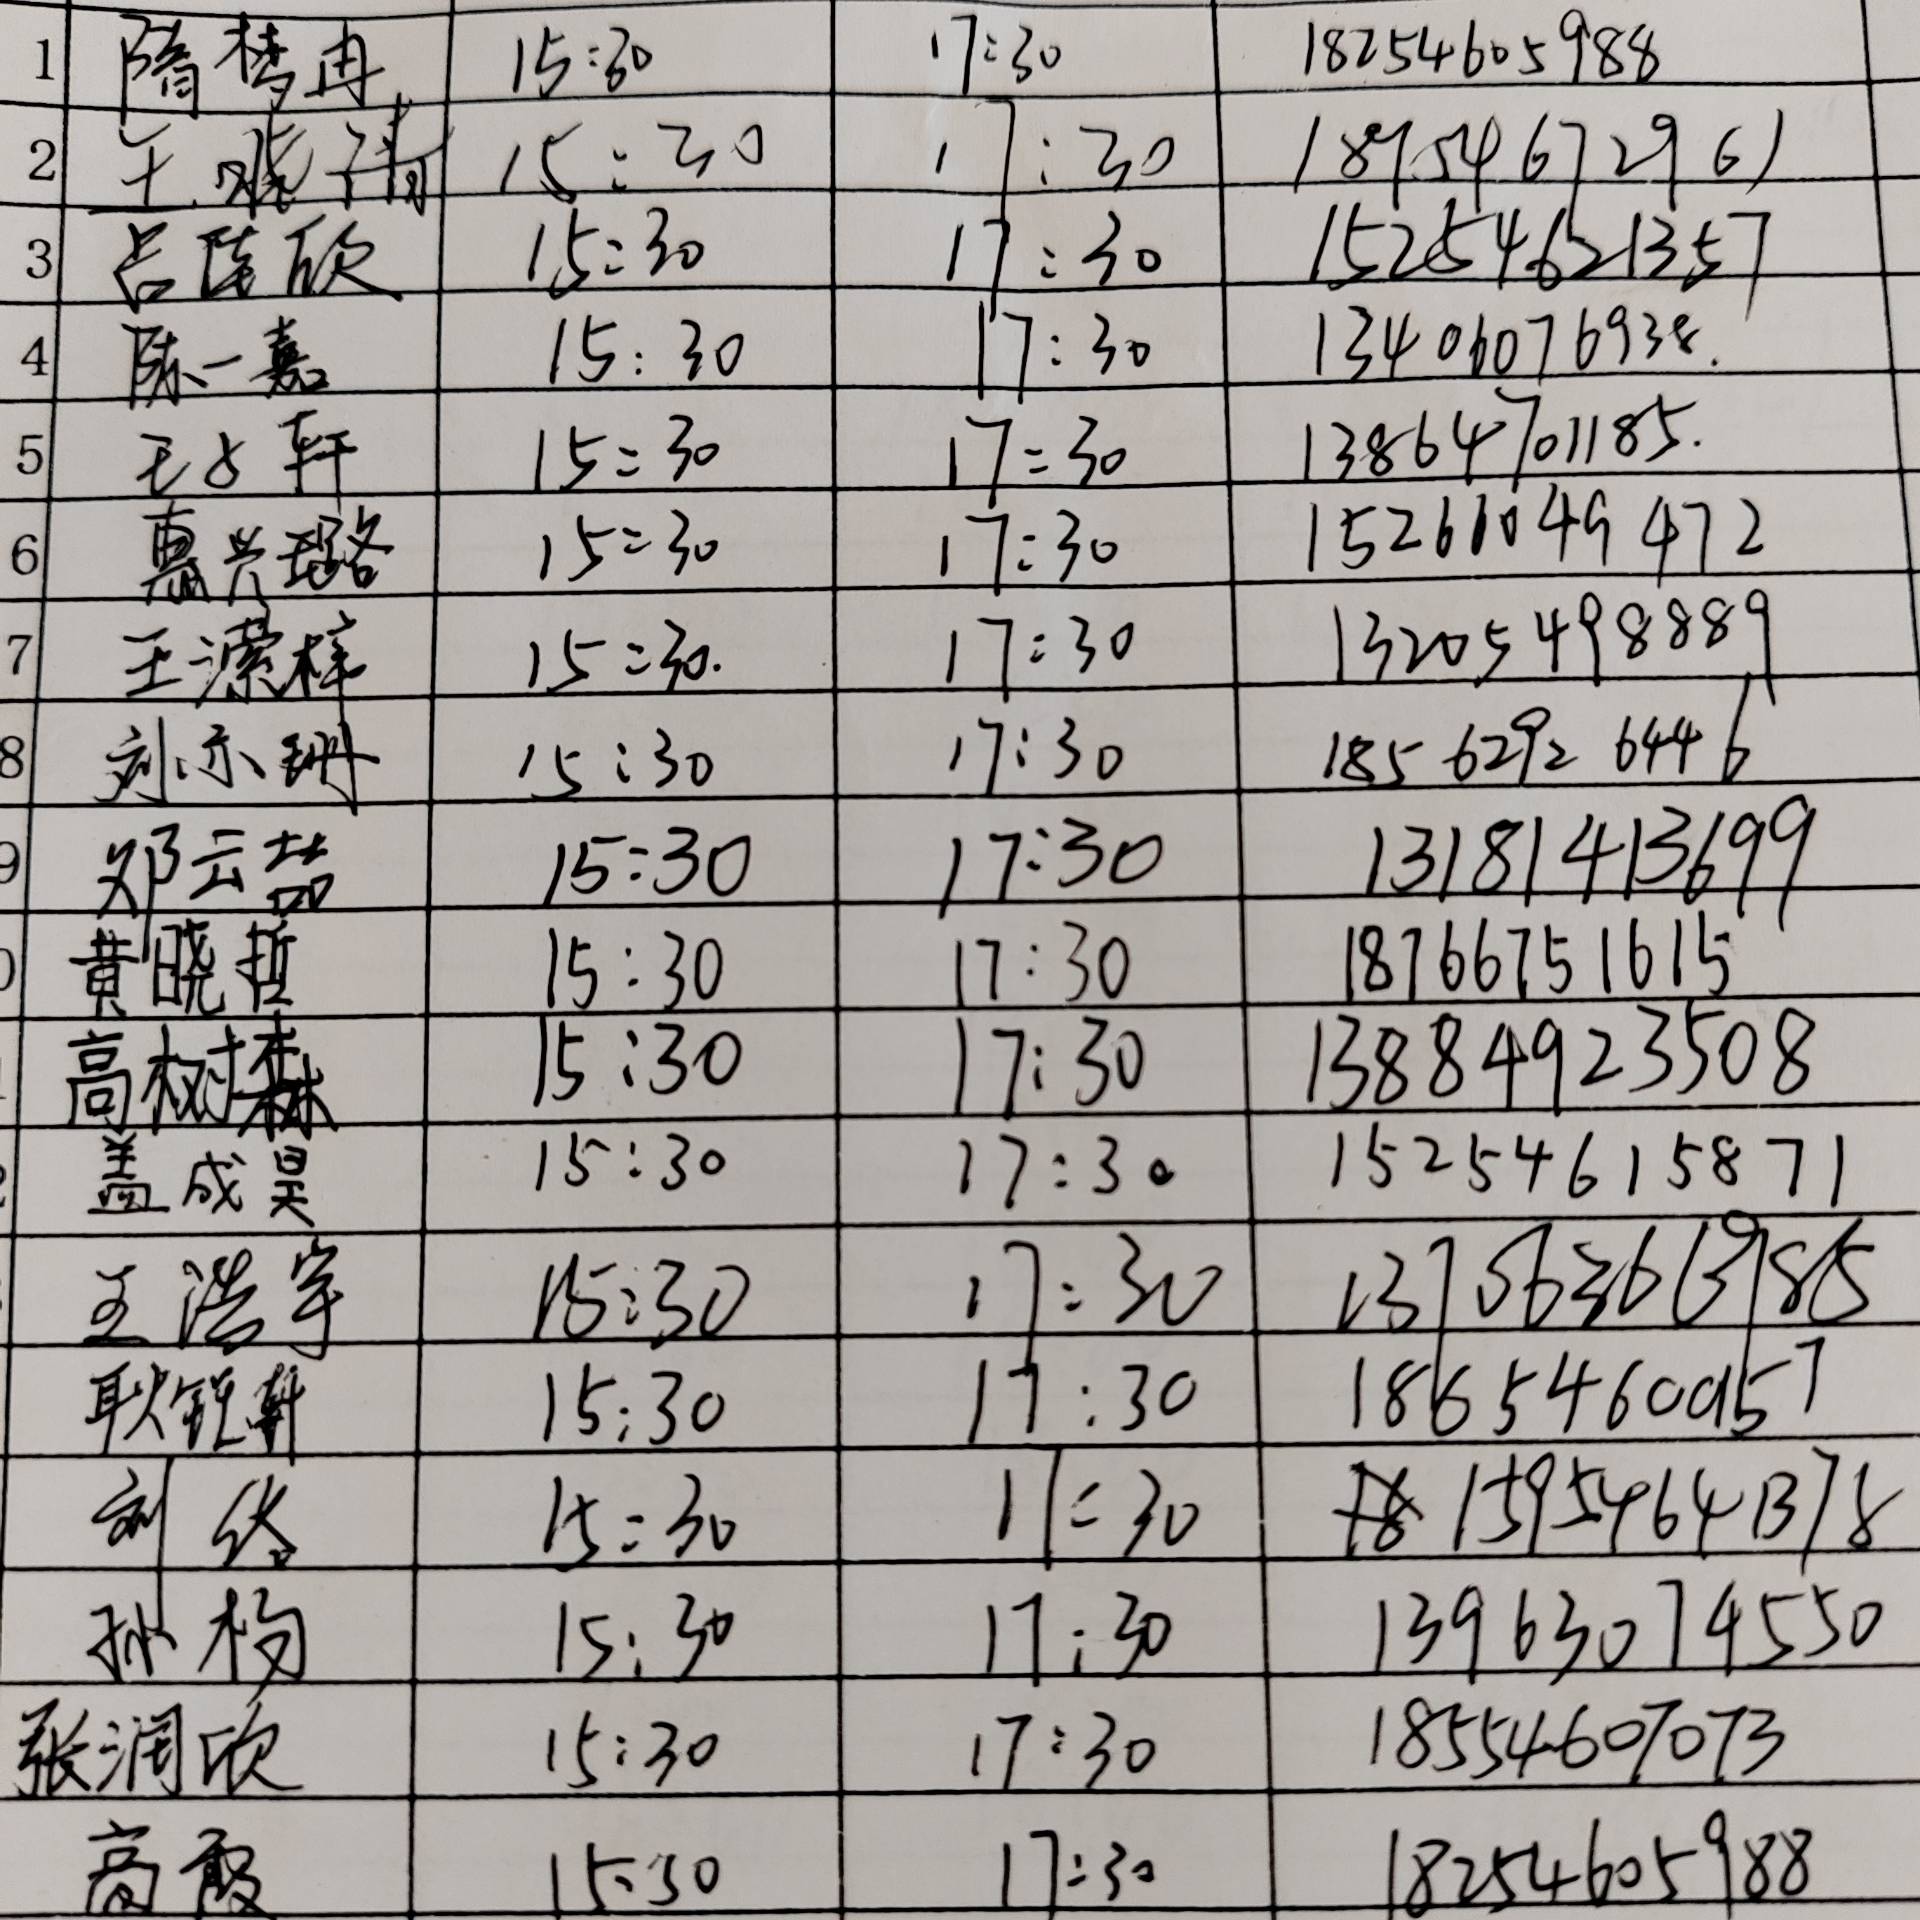 1 隋梦冉 15:30 17:30 18254605988
2 王晓倩 15:30 17:30 18954672961
3 吕陆欣 15:30 17:30 15254621357
4 陈一嘉 15:30 17:30 13406076938.
5 王轩 15:30 17:30 13864701185.
6 惠兴璐 15:30 17:30 15261049472
7 王潆梓 15:30. 17:30 13205498889
8 刘亦珊 15:30 17:30 18562926446
9 邓云喆 15:30 17:30 13181413699
0 黄晓哲 15:30 17:30 18766751615
高树森 15:30 17:30 13884923508
盖成昊 15:30 17:30 15254615871
王浩宇 15:30 17:30
耿锐轩 15:30 17:30
刘 15:30 17:30 15954641378
孙杨 15:30 17:30 13963074550
张润欣 15:30 17:30 18554607073
高霞 15:30 17:30 18254605988